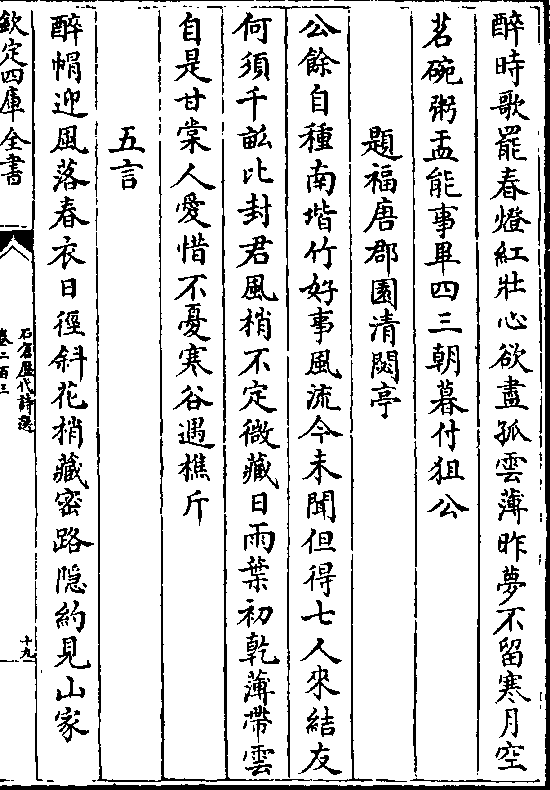 醉時歌罷春燈紅壯心欲盡孤雲薄昨夢不留寒月空
茗碗粥盂能事畢四三朝暮付狙公
題福唐郡園清閟亭
公餘自種南堦竹好事風流今未聞但得七人來結友
何須千畝比封君風梢不定微藏日雨葉初乾薄帶雲
自是甘棠人愛惜不憂寒谷遇樵斤
五言
醉帽迎風落春衣日徑斜花梢藏密路隱約見山家
欽定四庫全書
石倉歷代詩選
卷二百三
十九